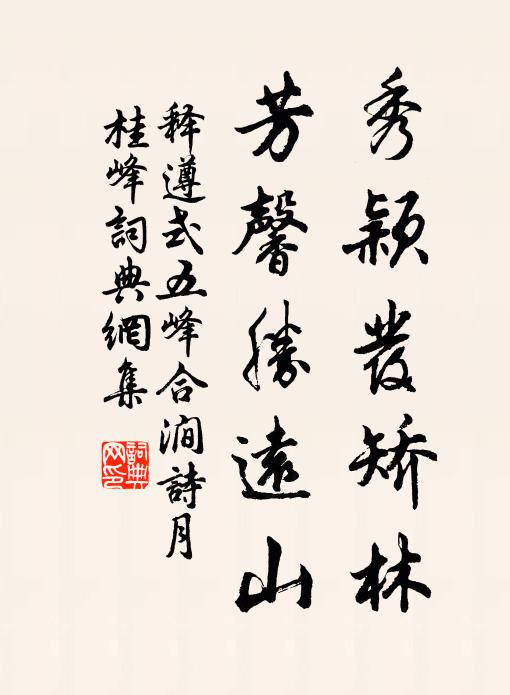 秀颖發矫林
芳馨勝遠山
释遵式五峰合澗詩月
桂峰詞典網集
詞典网印